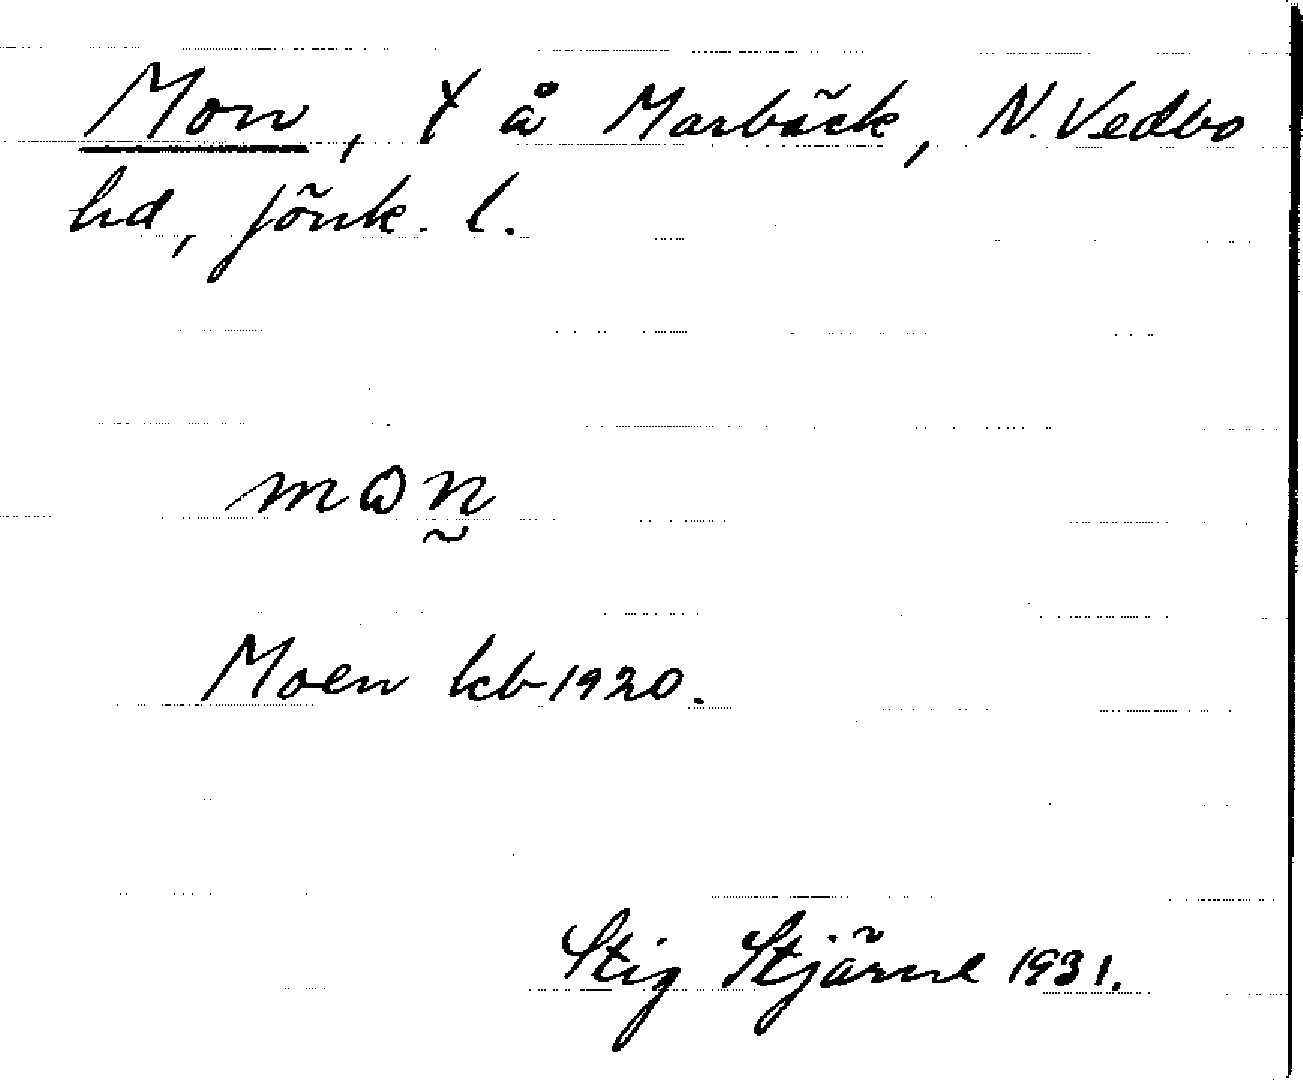 Mon, t å Marbäck, N. Vedbo
hd, Jönk. l.
mωn̰
Moen kb 1920.
Stig Stjärne 1931.